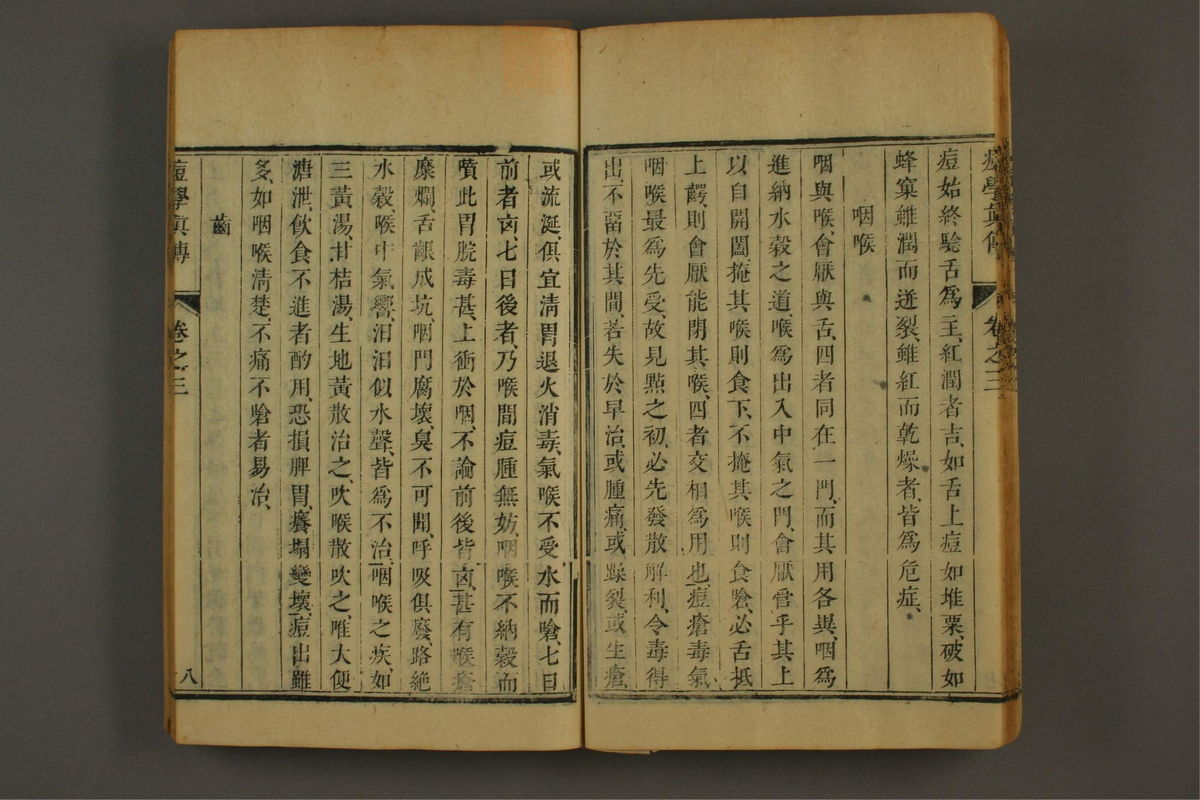 痘學眞傳 卷之三
痘始終驗舌爲主、紅潤者吉、如舌上痘如堆粟、破如
蜂窠、雖潤而迸裂、雖紅而乾燥者、皆爲危症、
咽喉
咽與喉、會厭與舌、四者同在一門、而其用各異、咽爲
進納水穀之道、喉爲出入中氣之門、會厭管乎其上
以自開闔、掩其喉則食下、不掩其喉則食嗆、必舌抵
上齶、則會厭能閉其喉、四者交相爲用也、痘瘡毒氣
咽喉最爲先受、故見點之初、必先發散解利、令毒得
出、不留於其間、若失於早治、或腫痛、或躁裂、或生瘡
或流涎、俱宜淸胃退火消毒、氣喉不受水而嗆、七日
前者凶、七日後者、乃喉間痘腫無妨、咽喉不納穀而
噴、此胃脘毒甚、上衝於咽、不論前後皆凶、甚有喉瘡
糜爛、舌齦成坑、咽門腐壞、臭不可聞、呼吸俱廢、路絶
水穀、喉中氣響、汨汨似水聲、皆爲不治、咽喉之疾、如
三黃湯、甘桔湯、生地黃散治之、吹喉散吹之、唯大便
溏泄、飮食不進者酌用、恐損脾胃、癢塌變壞、痘出雖
多、如咽喉淸楚、不痛不嗆者易治、
齒
痘學眞傳 卷之三 八